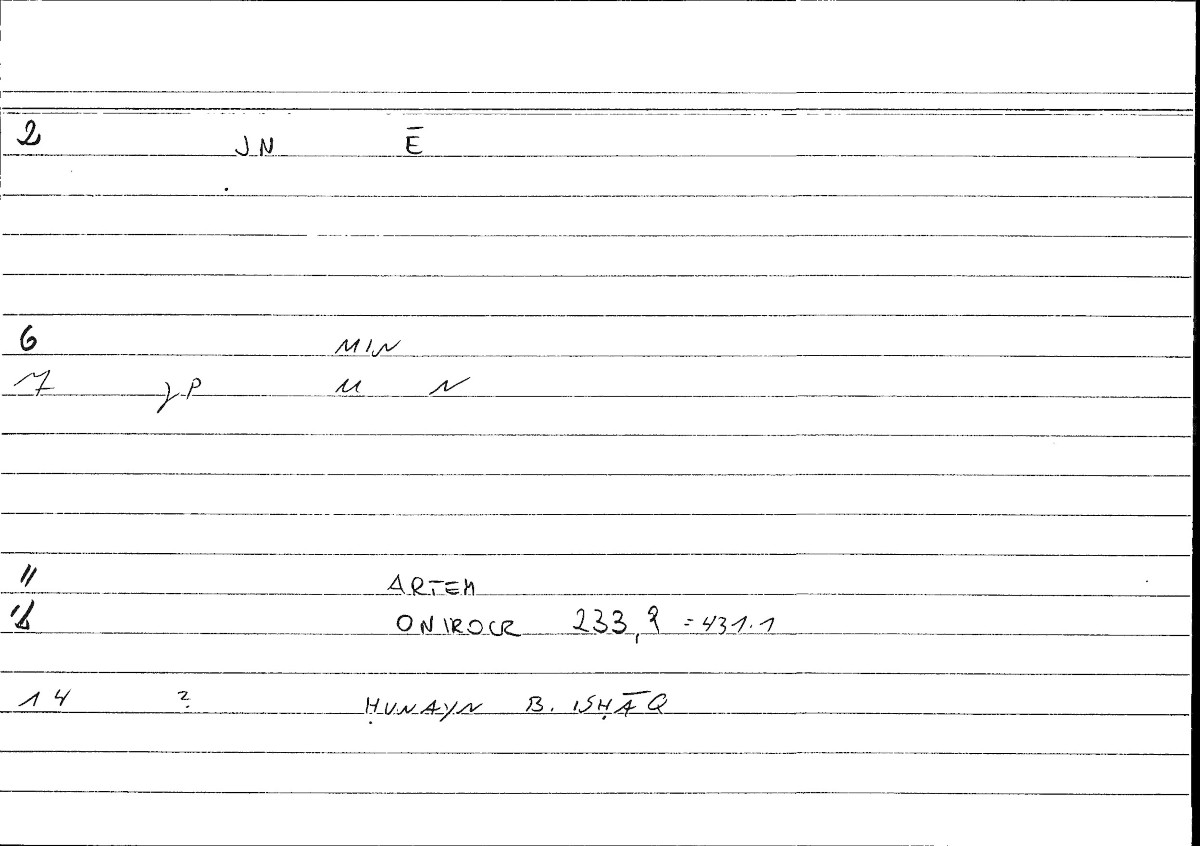 2 JN Ē
6 MIN
7 γP M N
11 ARTEM
12 ONIROCR 233,2 =431.1
14 ? ḤUNAYN B. ISḤĀQ